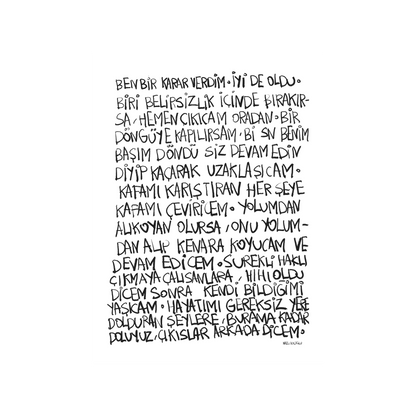 BEN BİR KARAR VERDİM. İYİ DE OLDU.
BİRİ BELİRSİZLİK İÇİNDE BIRAKIR-
SA, HEMEN ÇIKICAM ORADAN. BİR
DÖNGÜYE KAPILIRSAM, Bİ SN BENİM
BAŞIM DÖNDÜ SİZ DEVAM EDİN
DİYİP KAÇARAK UZAKLAŞICAM.
KAFAMI KARIŞTIRAN HER ŞEYE
KAFAMI ÇEVİRİCEM. YOLUMDAN
ALIKOYAN OLURSA, ONU YOLUM-
DAN ALIP KENARA KOYUCAM VE
DEVAM EDİCEM. SÜREKLİ HAKLI
ÇIKMAYA ÇALIŞANLARA, HIHI OLDU
DİCEM SONRA KENDİ BİLDİĞİMİ
YAŞICAM. HAYATIMI GEREKSİZ YERE
DOLDURAN ŞEYLERE, BURAMA KADAR
DOLUYUZ, ÇIKIŞLAR ARKADA DİCEM.